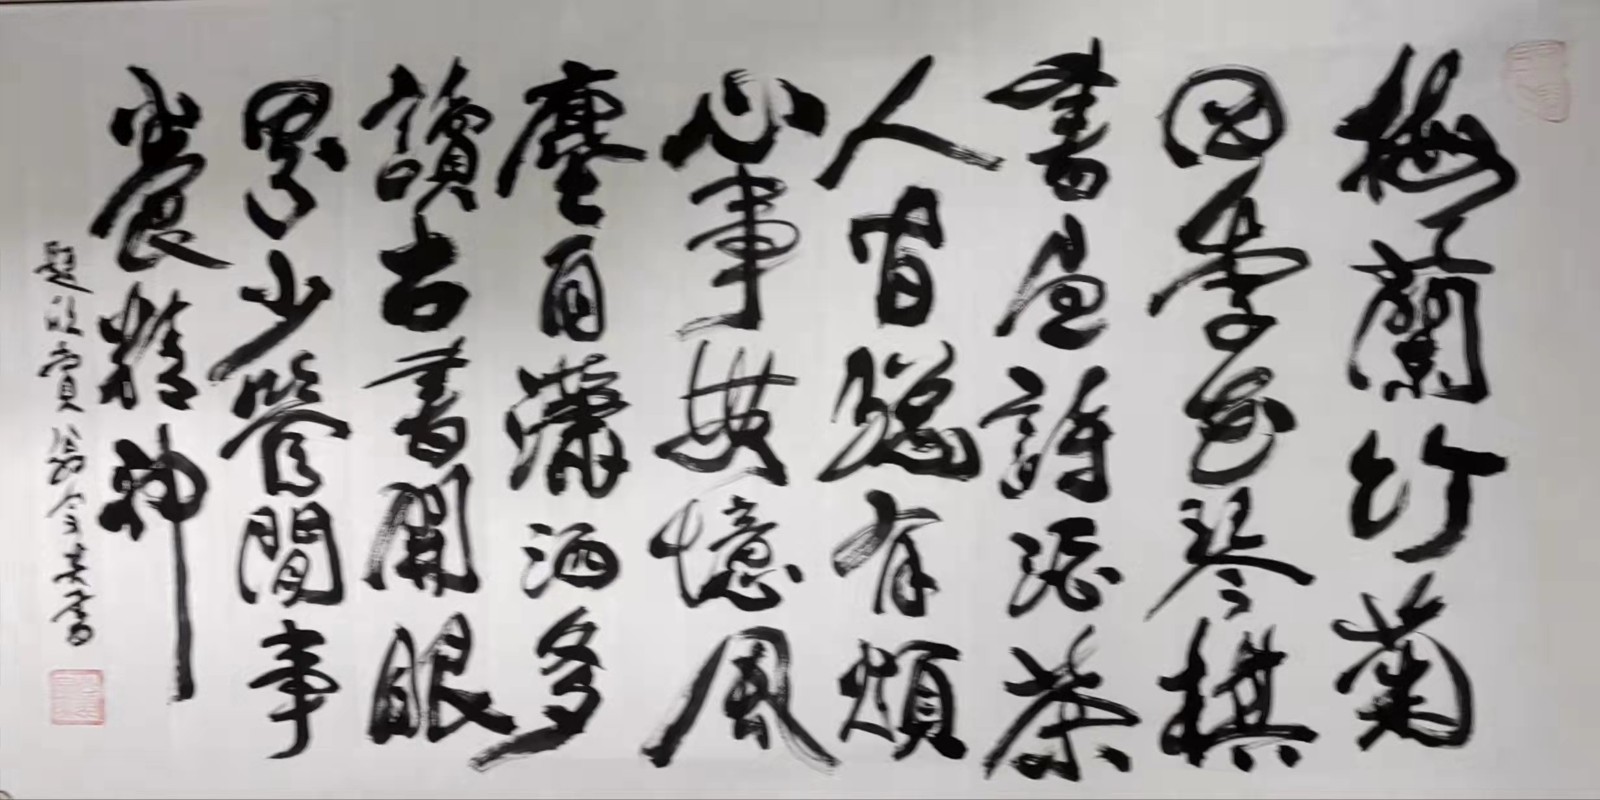 梅蘭竹菊
四季花琴棋
書畫詩酒茶
人皆縱有煩
心事無憶風
塵自瀟洒多
讀古書開眼
界少管閒事
養精神